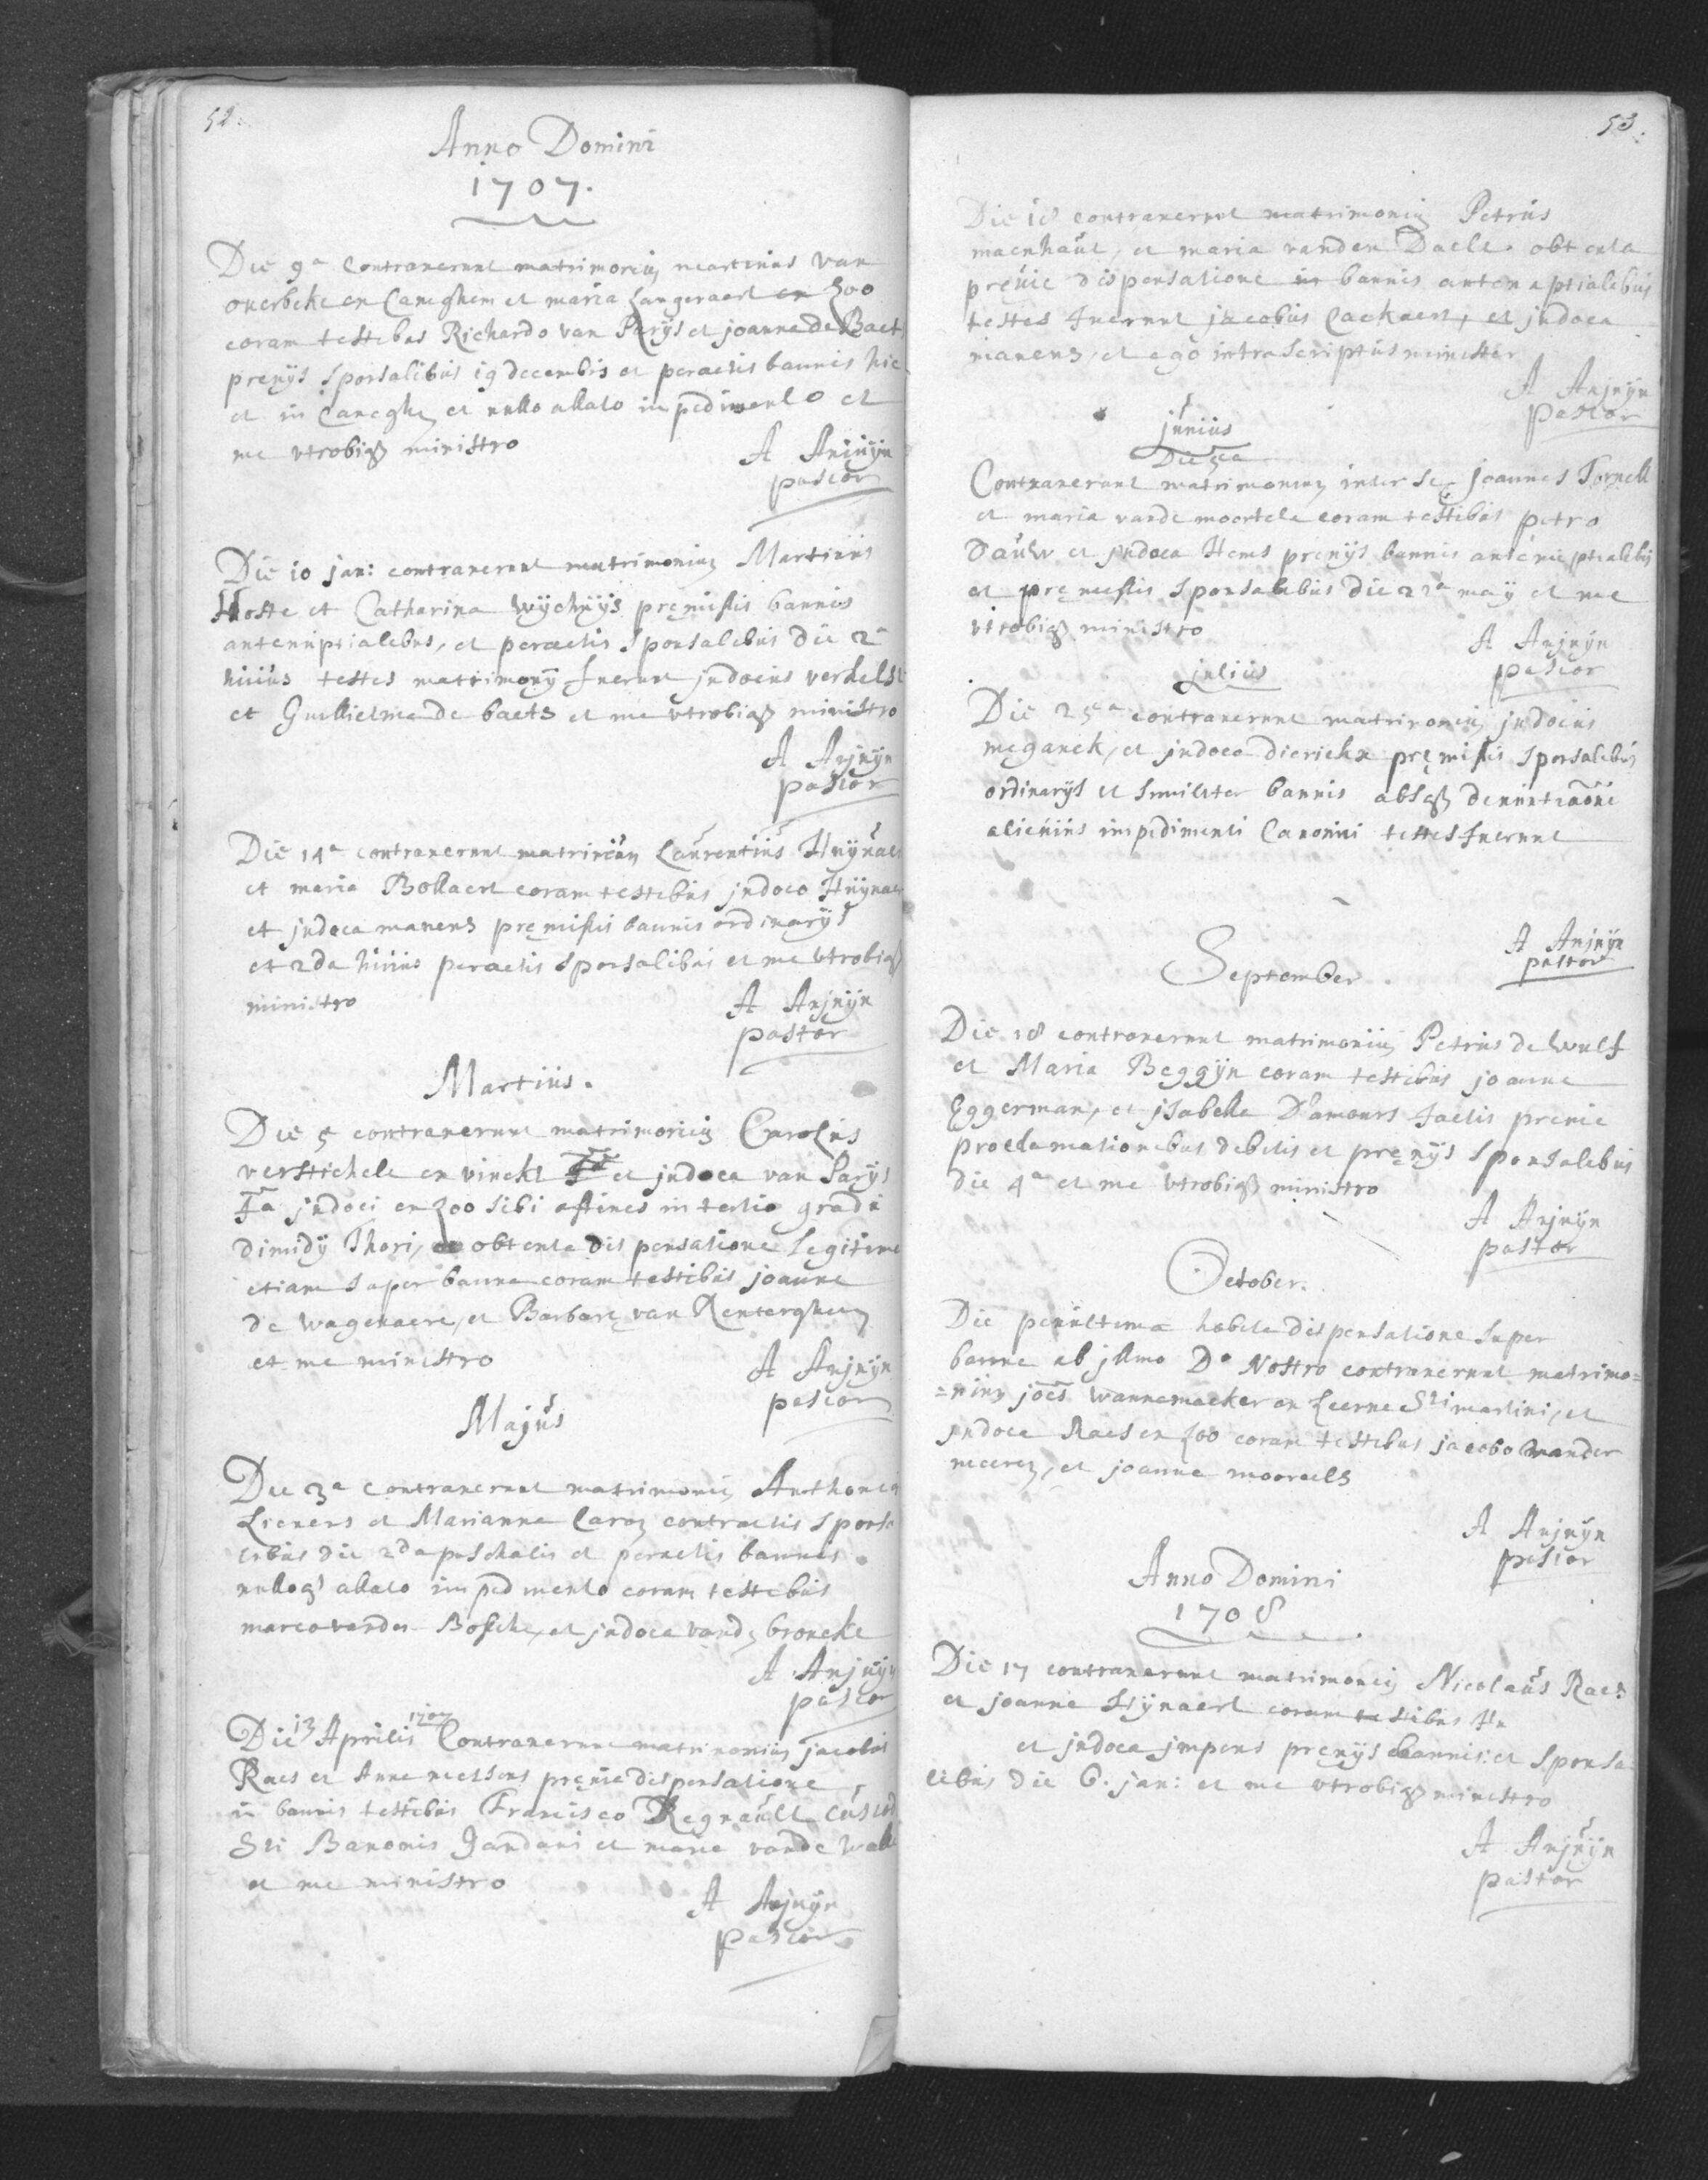 52.
Anno Domini
1707.
Die 9a contraxerunt matrimoniũ martinus van
overbeke en Caneghem et maria Langeraert en Zoo
coram testibus Richardo van Parijs et joanne de Baets
previjs sponsalibus 19 decembris et peractis bannis hic
et in Caneghẽ et nullo allato impedimento et
me utrobiq3 ministro
A Anjuijn
pastor
Die 10 jan: contraxerunt matrimoniũ Martinus
Hoste et Catharina Wychuijs premissis bannis
antenuptialibus, et peractis sponsalibus die 2a
huius testes matrimonij fuerunt judocus verhelst
et Guillielma de baets et me utrobiq3 ministro
A Anjuijn
pastor
Die 14a contraxerunt matrimoniũ Laurentius Huijnaert
et maria Bollaert coram testibus judoco Huijnaert
et judoca manens premissis bannis ordinarijs
et 2da huius peractis sponsalibus et me utrobiq3
ministro
A Anjuijn
pastor
Martius.
Die 5 contraxerunt matrimoniũ Carolus
verstichele en vinckt et judoca van Parijs
Fa judoci en Zoo sibi affines in tertio gradu
dimidij Thori, obtenta dispensatione Legitima
etiam super banna coram testibus joanne
de wagenaere, et Barbara van Renterghem
et me ministro
A Anjuijn
pastor
Majus
Die 3a contraxerunt matrimoniũ Anthonius
Lievens et Marianna Caron contractis sponsa
libus die 2da paschalis et peractis bannis
nulloq3 allato impedimento coram testibus
marco vanden Bossche, et judoca vandẽ broucke
A Anjuijn
pastor
Die 13 Aprilis 1707 Contraxerunt matrimoniũ jacobus
Raes et Anna nelsens previe dispensatione
in bannis testibus Francisco Regnault custod
Sti Bavonis Gandavi et maria vande Walle
et me ministro
A Anjuijn
pastor
53.
Die 18 contraxerunt matrimoniũ Petrus
maenhaut, et maria vanden Daele. obtenta
previe dispensatione in bannis antenuptialibus
testes fuerunt jacobus Cackaert, et judoca
manens, et ego infrascriptus minister
A Anjuijn
pastor
junius
Die 5ta
Contraxerunt matrimonium inter se joannes Tornell
et maria vande moortele coram testibus petro
Dauw et judoca Hems previjs bannis antenuptialibus
et premissis sponsalibus die 22a maij et me
utrobiq3 ministro
A Anjuijn
pastor
julius
Die 25a contraxerunt matrimoniũ judocus
meganck, et judoca dierickx premissis sponsalibus
ordinarijs et similiter bannis absq3 denuntiaõne
alicuius impedimenti Canonici testes fuerunt
A Anjuijn
pastor
September.
Die 18 contraxerunt matrimoniũ Petrus de wulf
et Maria Beggijn coram testibus joanne
Eggerman, et jsabella D'amours factis previe
proclamationibus debitis et previjs sponsalibus
die 4a et me utrobiq3 ministro
A Anjuijn
pastor
October.
Die penultima habita dispensatione super
banna ab jllmo Do Nostro contraxerunt matrimo=
=nium joẽs wannemaeker en Leerne Sti martini, et
judoca Raes en Zoo coram testibus jacobo vander
meeren, et joanna mooreels
A Anjuijn
pastor
Anno Domini
1708
Die 17 contraxerunt matrimoniũ Nicolaus Raes
et joanna Hijnaert coram testibus
et judoca jmpens previjs bannis: et sponsa
libus die 6. jan: et me utrobiq3 ministro
A Anjuijn
pastor